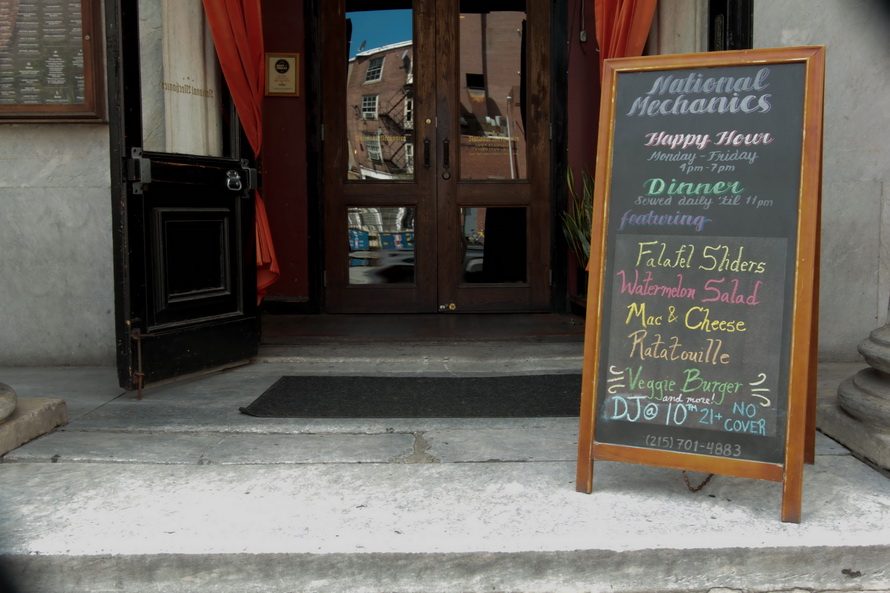 National
Mechanics
Happy Hour
Monday - Friday
4pm - 7pm
Dinner
Served daily 'til 11pm
featuring
Falafel Sliders
Watermelon Salad
Mac & Cheese
Ratatouille
Veggie Burger
and more!
DJ@ 10TH 21+ NO COVER
(215) 701-4883